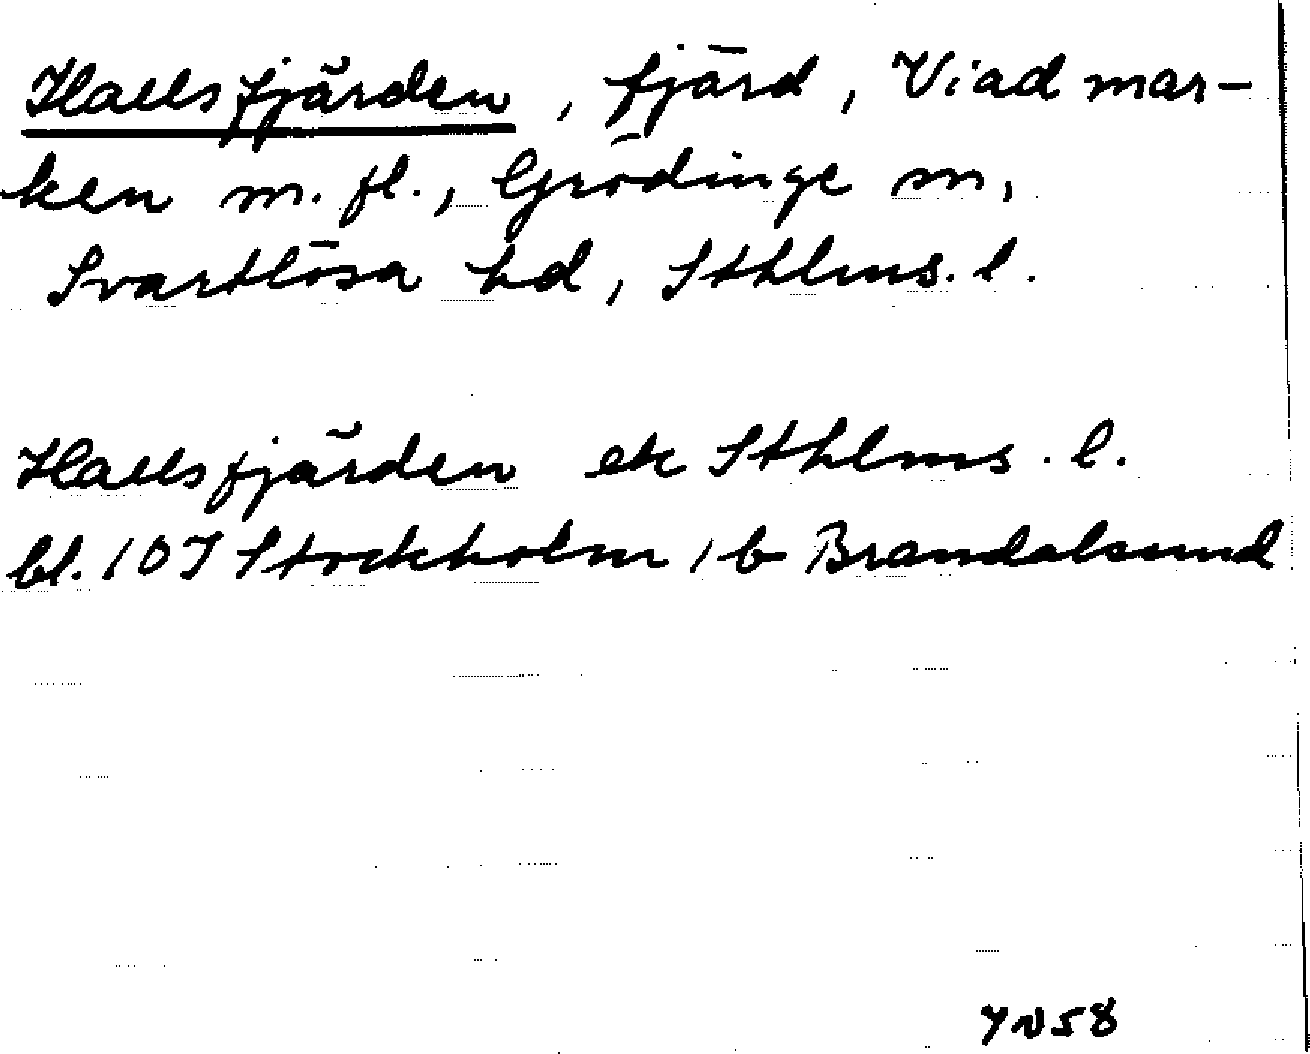 Hallsfjärden, fjärd, Viad mar-
ken m. fl., Grödinge sn,
Svartlösa hd, Sthlms. l.
Hallsfjärden ek Sthlms. l.
bl. 10 I Stockholm, b Brandalsund